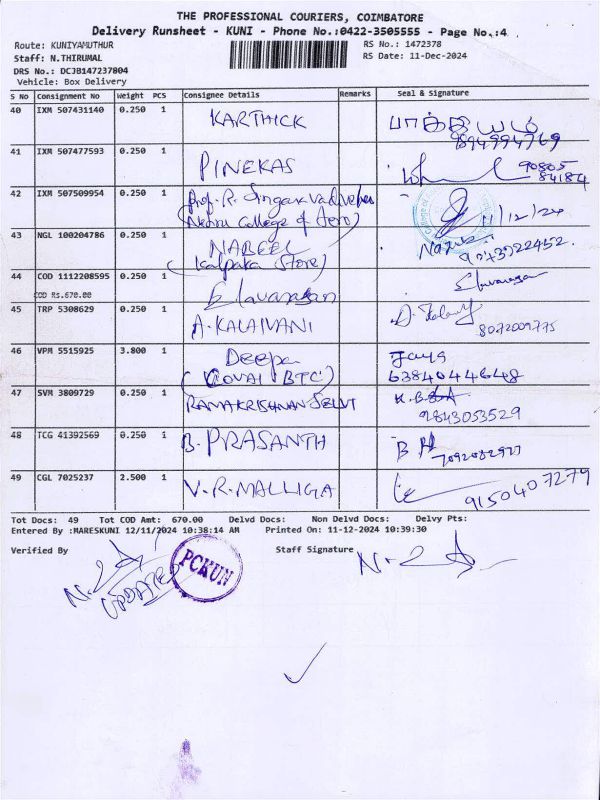 THE PROFESSIONAL COURIERS, COIMBATORE
Delivery Runsheet - KUNI - Phone No.:0422-3505555 - Page No.:4
Route: KUNIYAMUTHUR RS No.: 1472378
Staff: N.THIRUMAL RS Date: 11-Dec-2024
DRS No.: DCJB147237804
Vehicle: Box Delivery
S No Consignment No Weight PCS Consignee Details Remarks Seal & Signature
40 IXM 507431140 0.250 1 KARTHICK
9894994769
41 IXM 507477593 0.250 1 PINEKAS 90805
84184
42 IXM 507509954 0.250 1 Prof. R. Singaravadivelu
(Nehru College of Aero) 11/12/24
43 NGL 100204786 0.250 1 NABEEL
(Kalpaka Store) 9043922452
44 COD 1112208595 0.250 1 Elavarasan Elavarasan
COD Rs.670.00
45 TRP 5308629 0.250 1 A.KALAIVANI
8072009775
46 VPM 5515925 3.800 1 Deepa Jaya
(COVAI BTC) 6384044648
47 SVM 3809729 0.250 1 RAMAKRISHNAN SELVI
9843053529
48 TCG 41392569 0.250 1 B. PRASANTH
49 CGL 7025237 2.500 1 V.R.MALLIGA 9150407279
Tot Docs: 49 Tot COD Amt: 670.00 Delvd Docs: Non Delvd Docs: Delvy Pts:
Entered By :MARESKUNI 12/11/2024 10:38:14 AM Printed On: 11-12-2024 10:39:30
Verified By Staff Signature
PCKUN
UPDATED